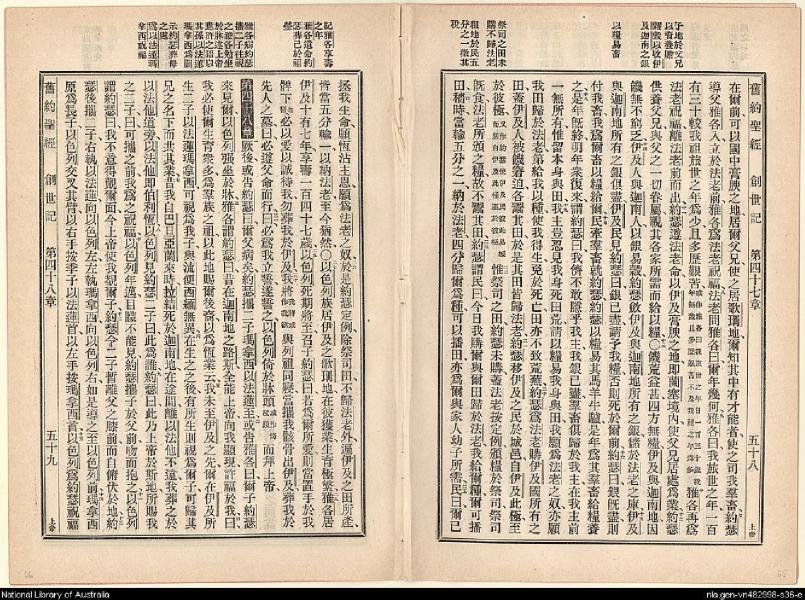 舊約聖經 創世記 第四十七章 五十八
在爾前可以國中膏腴之地居爾父兄使之居歌珊地爾知其中有才能者使之司我羣畜約瑟
導父雅各入立於法老前雅各爲法老祝福法老問雅各曰爾年幾何雅各曰我旅世之年一百
有三十載我祖旅世之年爲少且多歷艱苦 雅各再爲
法老祝福離法老前而出約瑟遵法老命以伊及膏腴之地即蘭塞境內使父兄居處爲業約瑟
供養父兄與父之一切眷屬視其各家所需而給以糧○饑荒益甚四方無糧伊及與迦南地因
饑無不窮乏伊及人與迦南人以銀易穀約瑟斂伊及與迦南地所有之銀儲於法老之庫伊及
與迦南地所有之銀俱盡伊及民見約瑟曰銀已盡請予我糧否則死於爾前約瑟曰銀旣盡則
付我畜我爲爾畜以糧給爾民牽羣畜就約瑟約瑟以糧易其馬羊牛驢是年爲其羣畜給糧養
之是年旣終明年衆復來謂約瑟曰我儕不敢隱乎我主我銀已盡羣畜俱歸於我主在我主前
一無所有惟留本身與田我主豈忍見我身死田荒願以糧易我身與田我願爲法老之奴亦願
我田歸於法老第給我以種使我得生免於死亡田亦不致荒蕪約瑟爲法老購伊及國所有之
田蓋伊及人被饑窘迫各鬻其田於是其田皆歸法老約瑟移伊及之民於城邑自伊及此極至
於彼極 惟祭司之田約瑟未購蓋法老按定例頒糧於祭司祭司
旣食法老所頒之糧故不鬻其田約瑟謂民曰今日我購爾與爾田歸於法老我給爾種爾可播
田穡時當輸五分之一納於法老四分歸爾爲種可以播田亦爲爾與家人幼子所需民曰爾已
以糧易畜
祭司之田未
購不歸法老
租地於民五
分之一徵其
我
拯我生命願恆沾主恩願爲法老之奴於是約瑟定例除祭司田不歸法老外遍伊及之田所產
皆當五分輸一以納法老至今猶然○以色列族居伊及之歌珊地在彼獲業生育極繁雅各居
伊及十有七年享壽一百四十七歲以色列死期將至召子約瑟曰若爲爾所愛則當置手於我
髀下 必以愛以誠待我勿葬我於伊及 與列祖同寢當攜我骸骨出伊及葬我於
先人之墓曰必遵父命而行曰必爲我立誓遂誓之以色列倚於牀頭 而拜上帝
第四十八章 厥後或告約瑟曰爾父病矣約瑟攜二子瑪拿西以法蓮至或告雅各曰爾子約瑟
來見爾以色列强坐於牀雅各謂約瑟曰昔在迦南地之路斯全能上帝向我顯現許福於我曰
我必使爾生育衆多爲羣族之祖以此地賜爾後裔以爲恆業云我未至伊及之先爾在伊及所
生二子以法蓮瑪拿西可視爲我子與流便西緬無異在生之之後有所生則視爲爾子可歸其
兄之名下而共其業昔我自巴旦亞蘭來時拉結死於迦南地在途間離以法他不遠我葬之於
以法他道旁以法他即伯利恆以色列見約瑟二子曰此爲誰約瑟曰此乃上帝於斯地所賜我
之二子曰可攜之前我爲之祝福以色列年邁目矇不能見約瑟攜子於父前吻而抱之以色列
謂約瑟曰我不意得覩爾面今上帝使我覩爾子約瑟令二子暫離父之膝前而自俯伏於地約
瑟後攜二子右執以法蓮向以色列左左執瑪拿西向以色列右如是導之至以色列前瑪拿西
原爲長子以色列交叉其臂以右手按季子以法蓮首以左手按瑪拿西首以色列爲約瑟祝福
舊約聖經 創世記 第四十八章 五十九
記雅各享壽
之年
National Library of Australia
nla.gen-vn482998-s36-e